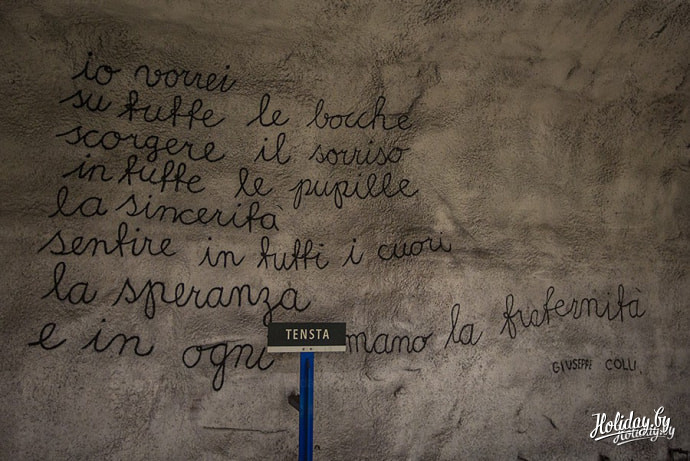 io vorrei
su tutte le bocche
scorgere il sorriso
in tutte le pupille
la sincerità
sentire in tutti i cuori
la speranza
e in ogni mano la fraternità
TENSTA
GIUSEPPE COLLI
Holiday.by
Holiday.by